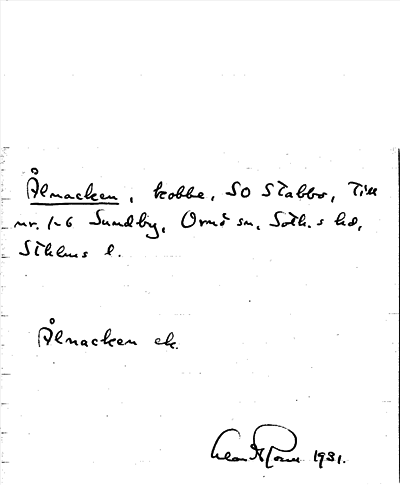 Ålnacken, kobbe, SO Stabbo, Till
nr. 1-6 Sundby, Ornö sn, Soth.s hd,
Sthlms l.
Ålnacken ek.
1931.